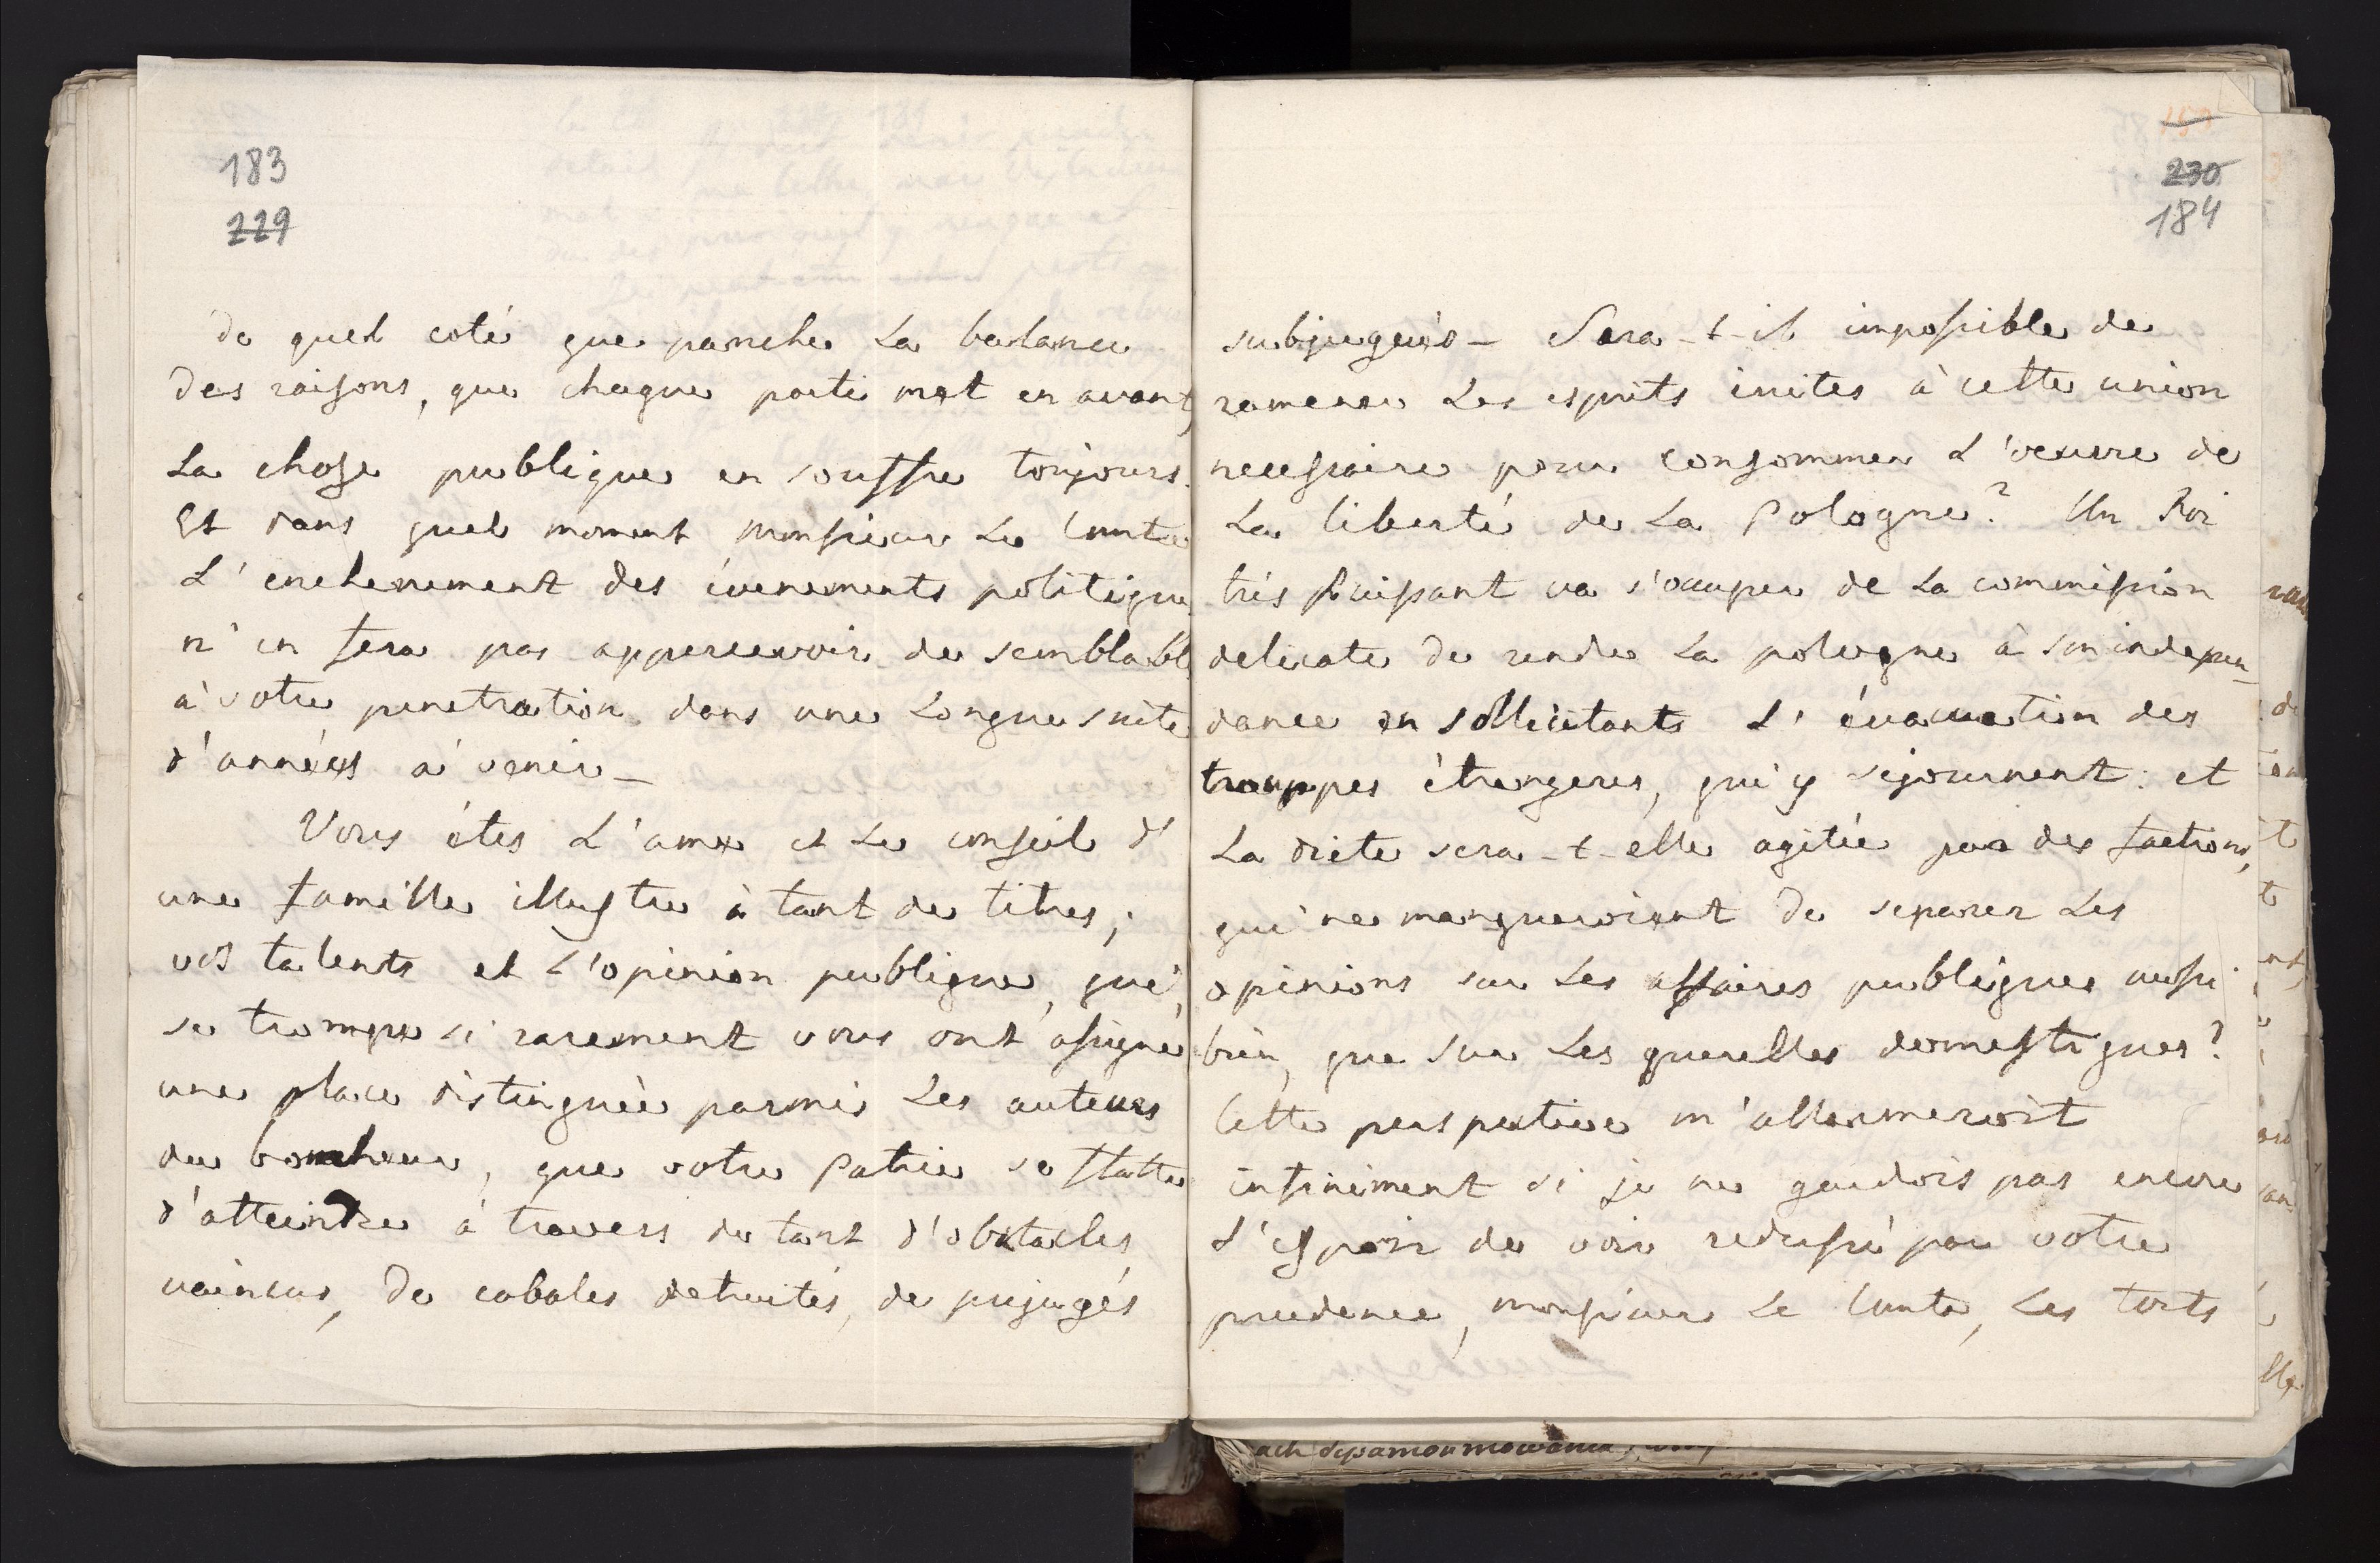 183
229
de quel coté que panche la balance
des raisons, que chaque parti met en avant,
La chose publique en souffre toujours.
Et dans quel moment Monsieur Le Comte
L'enchenement des évenements politique
n'en fera pas appercevoir de semblabl
à votre penetration dans une Longue suite
d'années à venir_
Vous étes L'ame et Le conseil d'
une famille illustre à tant de titres,
vos talents et L'opinion publique, qui
se trompe si rarement vous ont assigné
une place distinguée parmis Les auteurs
du bonheur, que votre Patrie se flatte
d'atteindre à travers de tant d'obstacles
vaincus, de cabales detruites, de prejugés
230
184
subjugués_ Sera-t-il impossible de
ramener Les esprits irrites à cette union
necessaire pour consommer L'oeuvre de
La liberté de La Pologne? Un Roi
trés puissant va s'occuper de La commission
delicate de rendre La pologne à son indepen_
dance en sollicitant L'évacuation des
trouppes étrangeres, qui y sejournent: et
La diete sera-t-elle agitée par des factions,
qui ne manqueroient de separer Les
opinions sur Les affaires publiques aussi
bien, que sur Les querelles domestiques?
Cette perspective m'allarmeroit
infiniment si je ne gardois pas encore
L'espoir de voir redressé par votre
prudence, monsieur Le Comte, Les torts